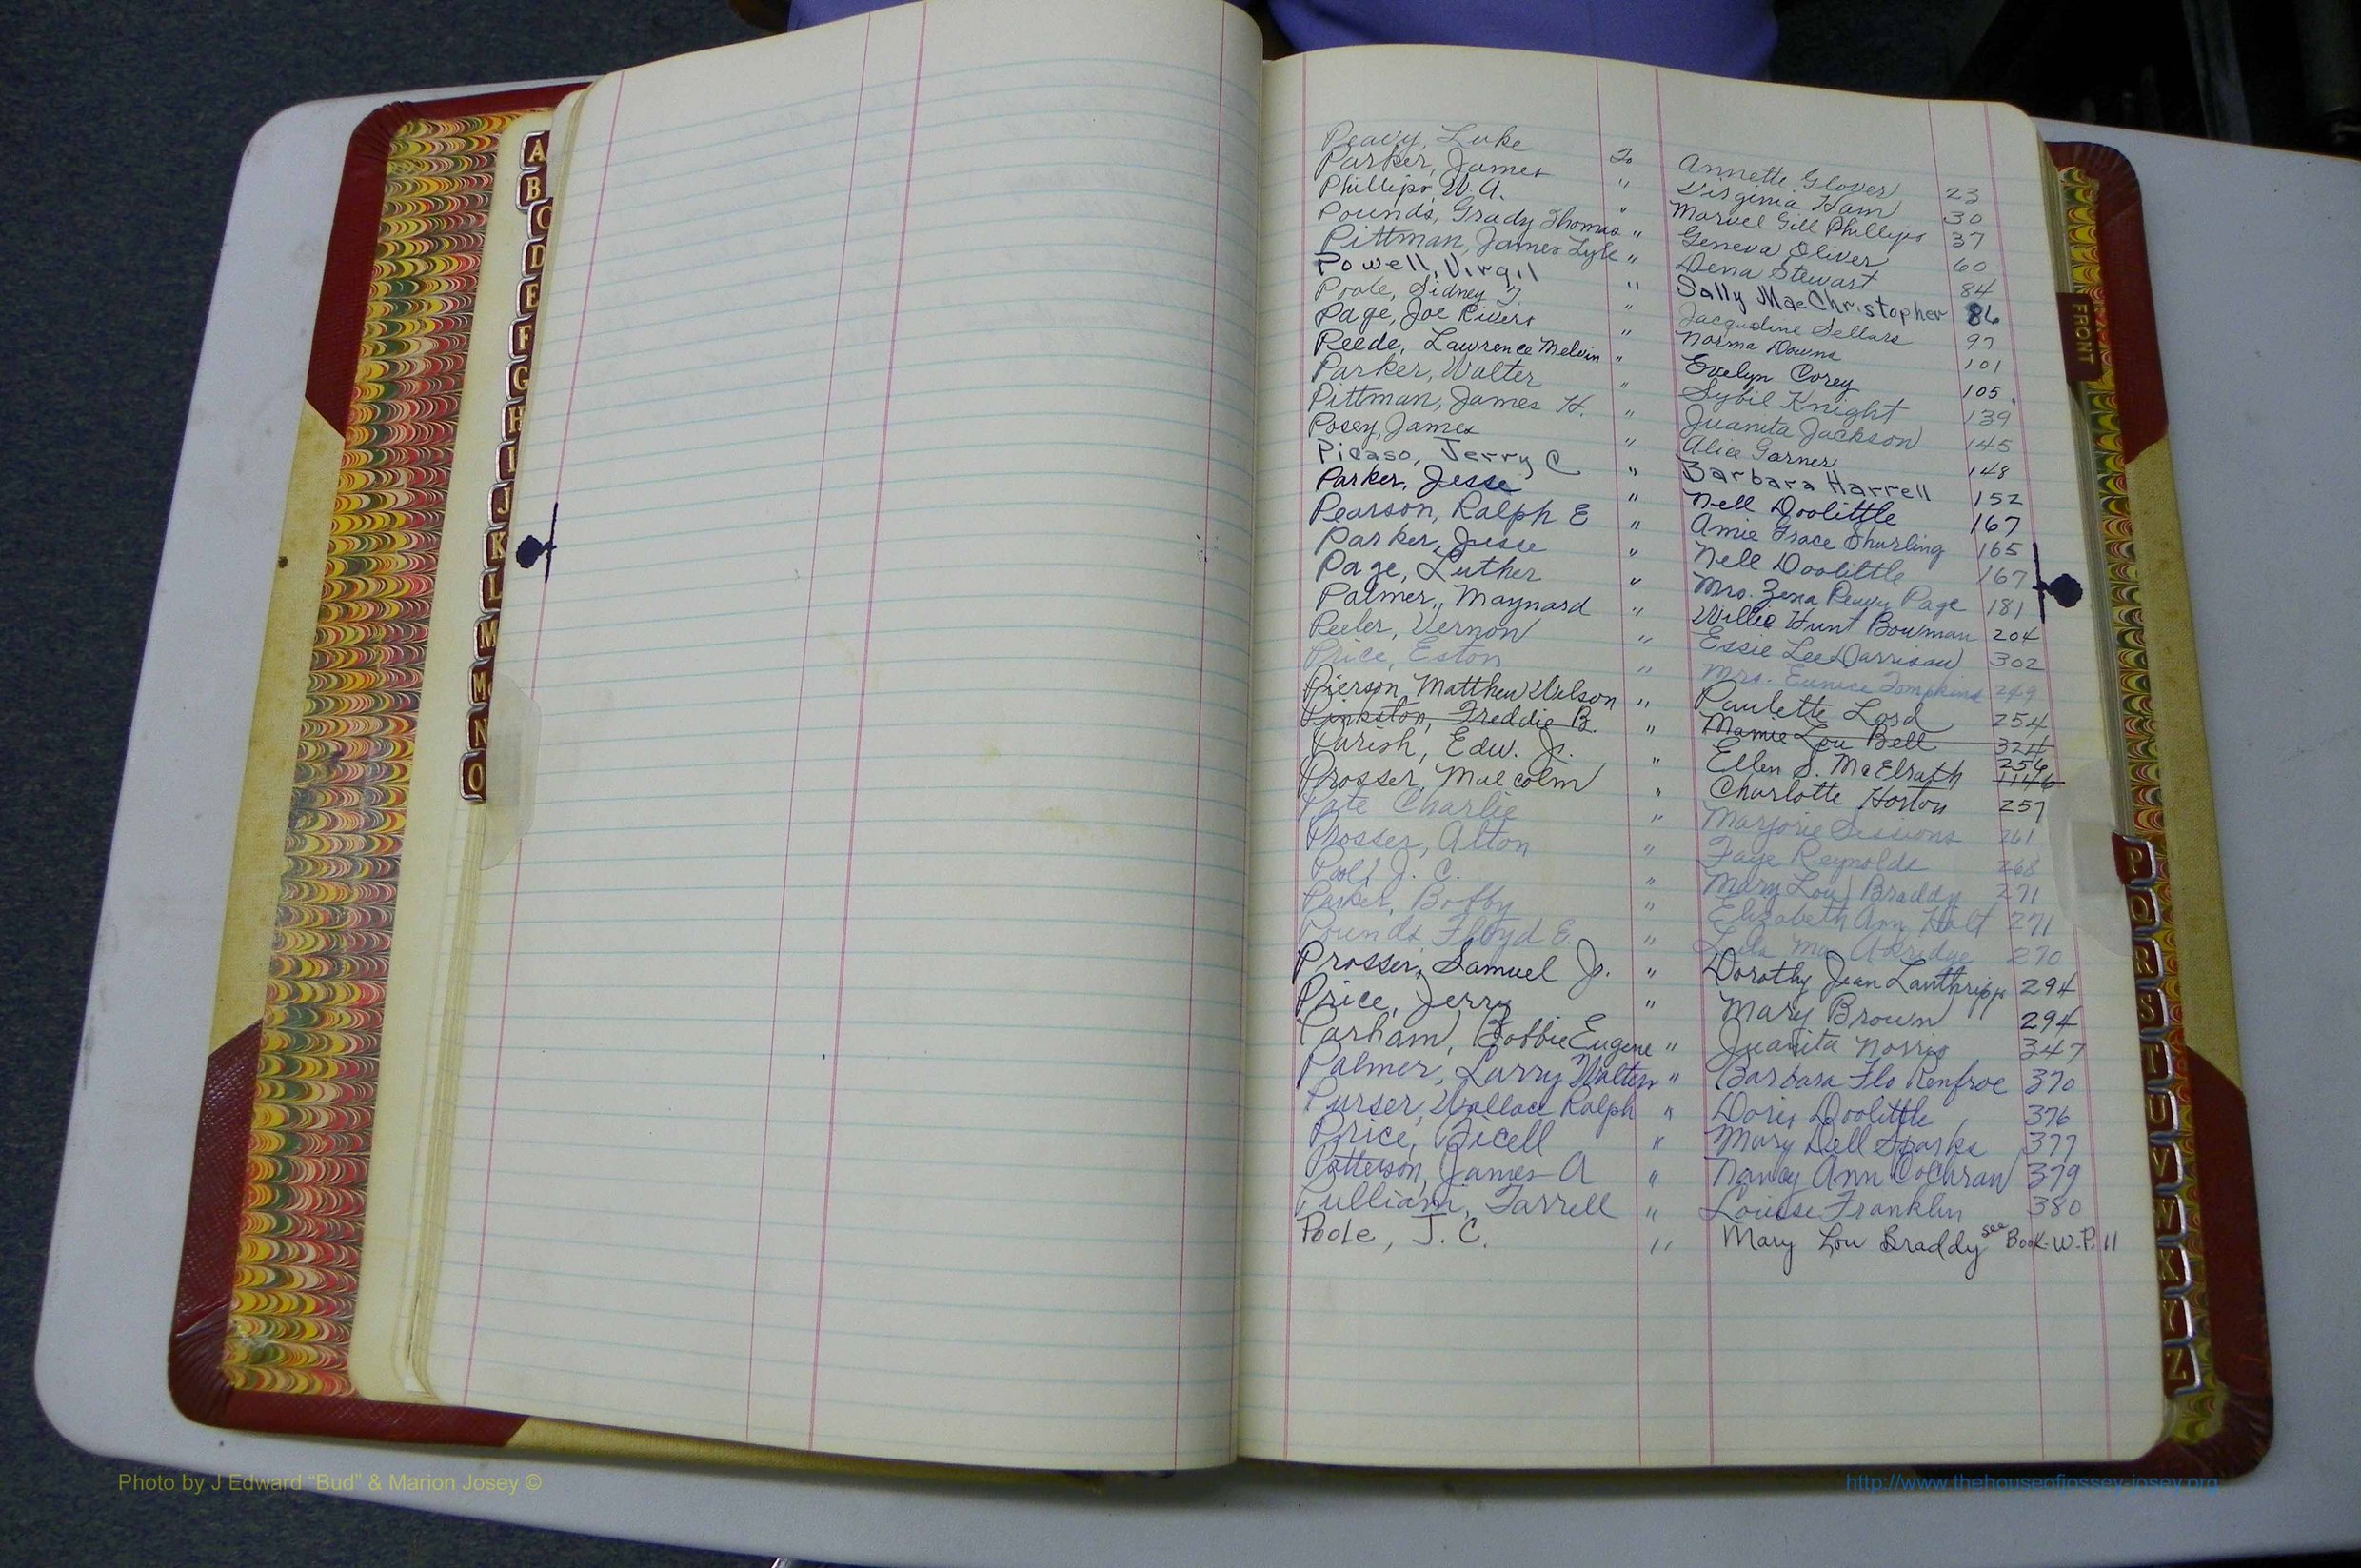 A
B
C
D
E
F
G
H
I
J
K
L
M
Mc
N
O
Peavy, Luke To Annette Glover 23
Parker, James " Virginia Ham 30
Phillips, W. A. " Marvel Gill Phillips 37
Pounds, Grady Thomas " Geneva Oliver 60
Pittman, James Lyle " Dena Stewart 84
Powell, Virgil " Sally Mae Christopher 86
Poole, Sidney T. " Jacqueline Sellars 97
Page, Joe Rivers " Norma Downs 101
Reede, Lawrence Melvin " Evelyn Corey 105.
Parker, Walter " Sybil Knight 139
Pittman, James H. " Juanita Jackson 145
Posey, James " Alice Garner 148
Picaso, Jerry C " Barbara Harrell 152
Parker, Jesse " Nell Doolittle 167
Pearson, Ralph E " Amie Grace Shurling 165
Parker, Jesse " Nell Doolittle 167
Page, Luther " Mrs. Zena Peavy Page 181
Palmer, Maynard " Willie Hunt Bowman 204
Peeler, Vernon " Essie Lee Darrisaw 302
Price, Eston " Mrs. Eunice Tompkins 249
Pierson, Matthew Wilson " Paulette Lord 254
Pinkston, Freddie B. " Mamie Lou Bell 324
Parish, Edw. Jr. " Ellen S. McElrath 256 1146
Prosser, Malcolm " Charlotte Horton 257
Pate Charlie " Marjorie Sessions 261
Prosser, Alton " Faye Reynolds 268
J. C. " Mary Lou Braddy 271
Parker, Bobby " Elizabeth Ann Holt 271
Pounds Floyd E. " Lula Mae Akridge 270
Prosser, Samuel Jr. " Dorothy Jean Lanthripp 294
Price, Jerry " Mary Brown 294
Parham, Bobbie Eugene " Juanita Norris 347
Palmer, Larry Walter " Barbara Flo Renfroe 370
Purser, Wallace Ralph " Doris Doolittle 376
Price, " Mary Dell Sparks 377
Patterson, James A " Nancy Ann Cochran 379
Pulliam, Farrell " Louise Franklin 380
Poole, J. C. " Mary Lou Braddy see Book-W.P. 11
FRONT
P
Q
R
S
T
U
V
W
X
Y
Z
Photo by J Edward “Bud” & Marion Josey ©
http://www.thehouseofjossey-josey.org